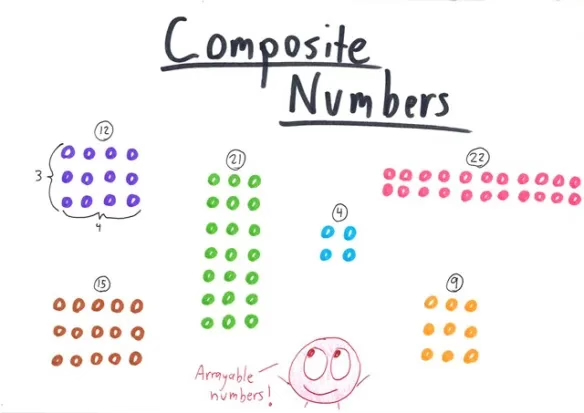 Composite
Numbers
12
21
22
3
4
4
15
9
Arrayable
numbers!